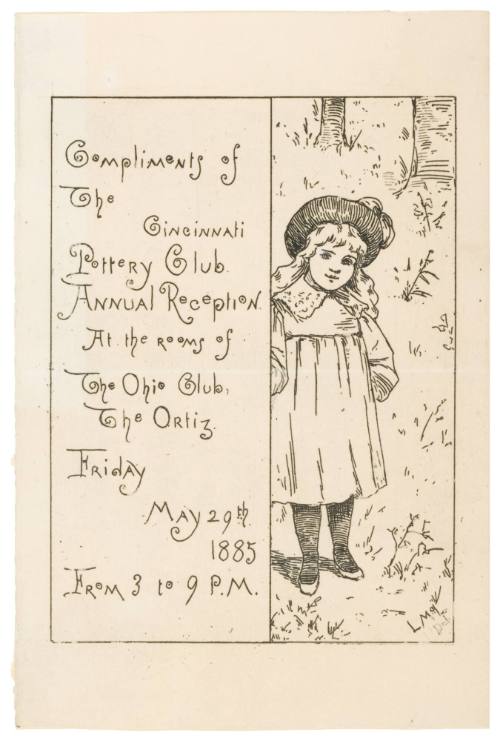 Compliments of
The
Cincinnati
Pottery Club.
Annual Reception.
At the rooms of
The Ohio Club,
The Ortiz.
Friday
May 29th.
1885
From 3 to 9 P.M.